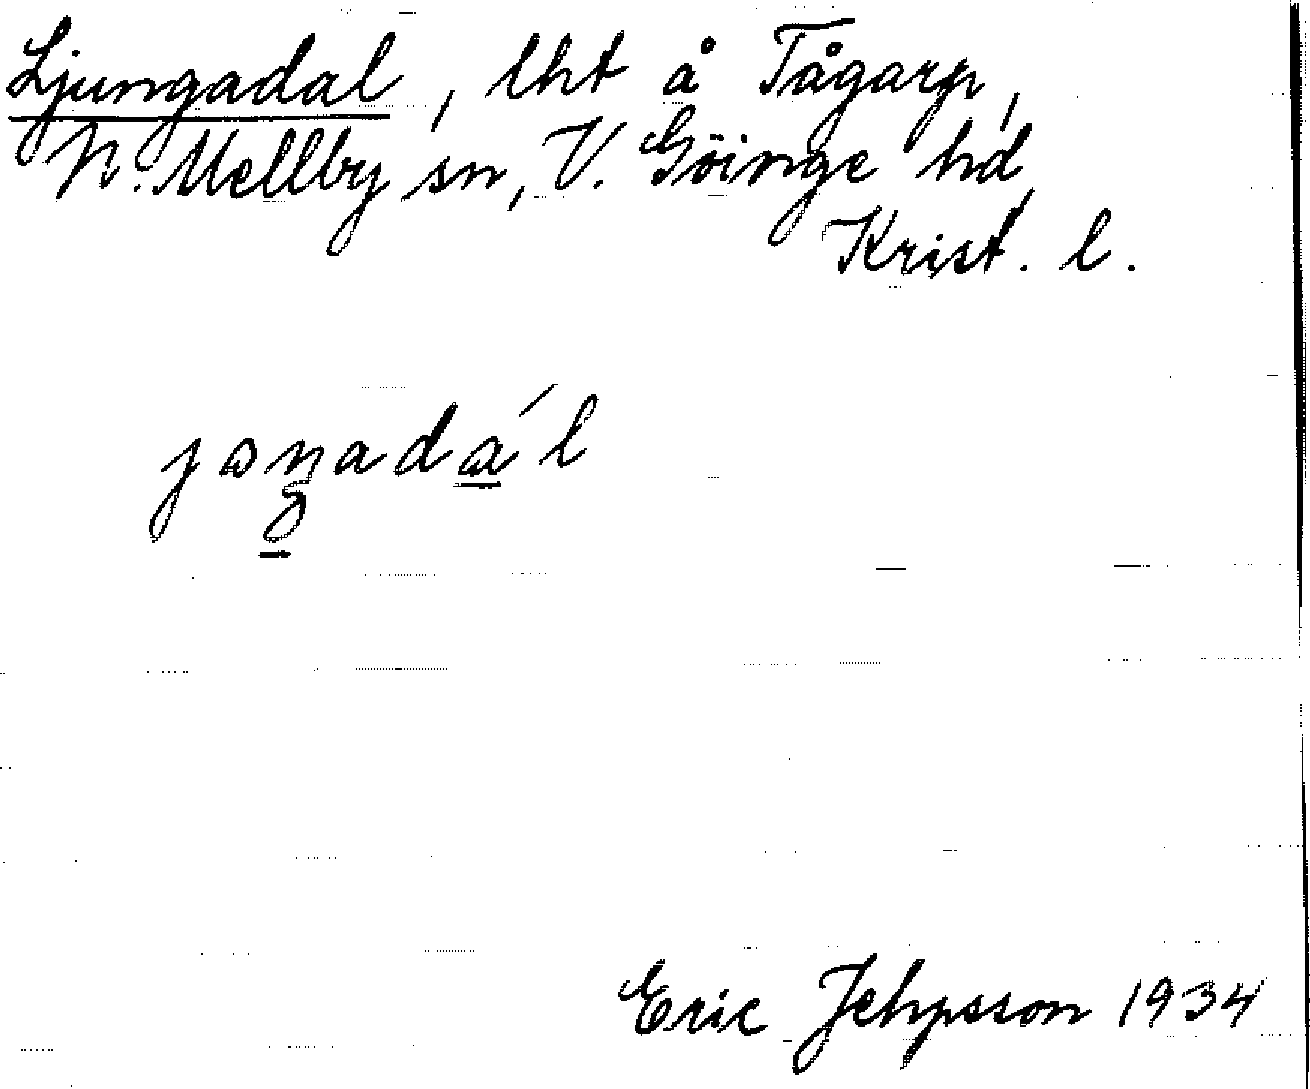 Ljungadal, lht å Tågarp,
N. Mellby sn, V. Göinge hd,
Krist. l.
Eric Jehpsson 1934